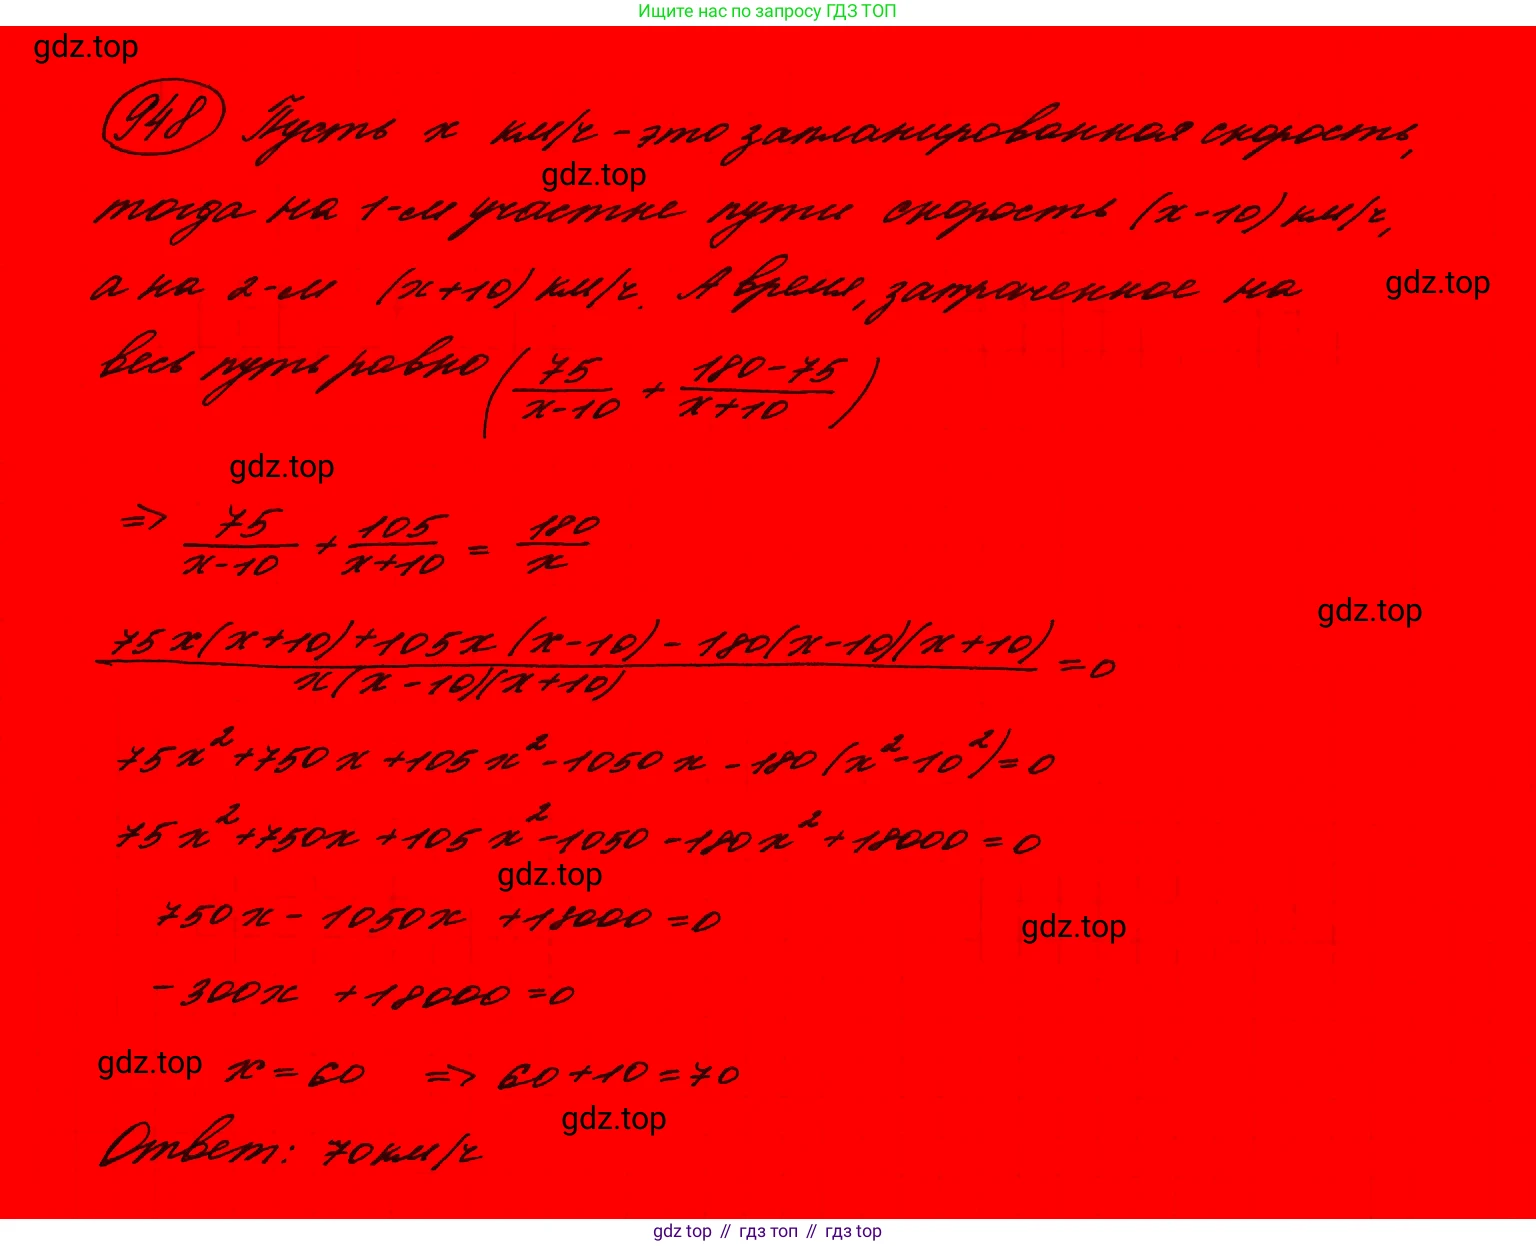 Ищите нас по запросу ГДЗ ТОП
gdz.top
948 Пусть x км/ч - это запланированная скорость,
gdz.top
тогда на 1-м участке пути скорость (x-10) км/ч,
а на 2-м (x+10) км/ч. А время, затраченное на
gdz.top
весь путь равно (75/(x-10) + (180-75)/(x+10))
gdz.top
=> 75/(x-10) + 105/(x+10) = 180/x
gdz.top
(75x(x+10)+105x(x-10)-180(x-10)(x+10))/(x(x-10)(x+10)) = 0
75x²+750x+105x²-1050x-180(x²-10²)=0
75x²+750x+105x²-1050-180x²+18000=0
gdz.top
750x-1050x +18000=0
gdz.top
-300x +18000=0
gdz.top
x=60 => 60+10=70
gdz.top
Ответ: 70км/ч
gdz top // гдз топ // гдз top